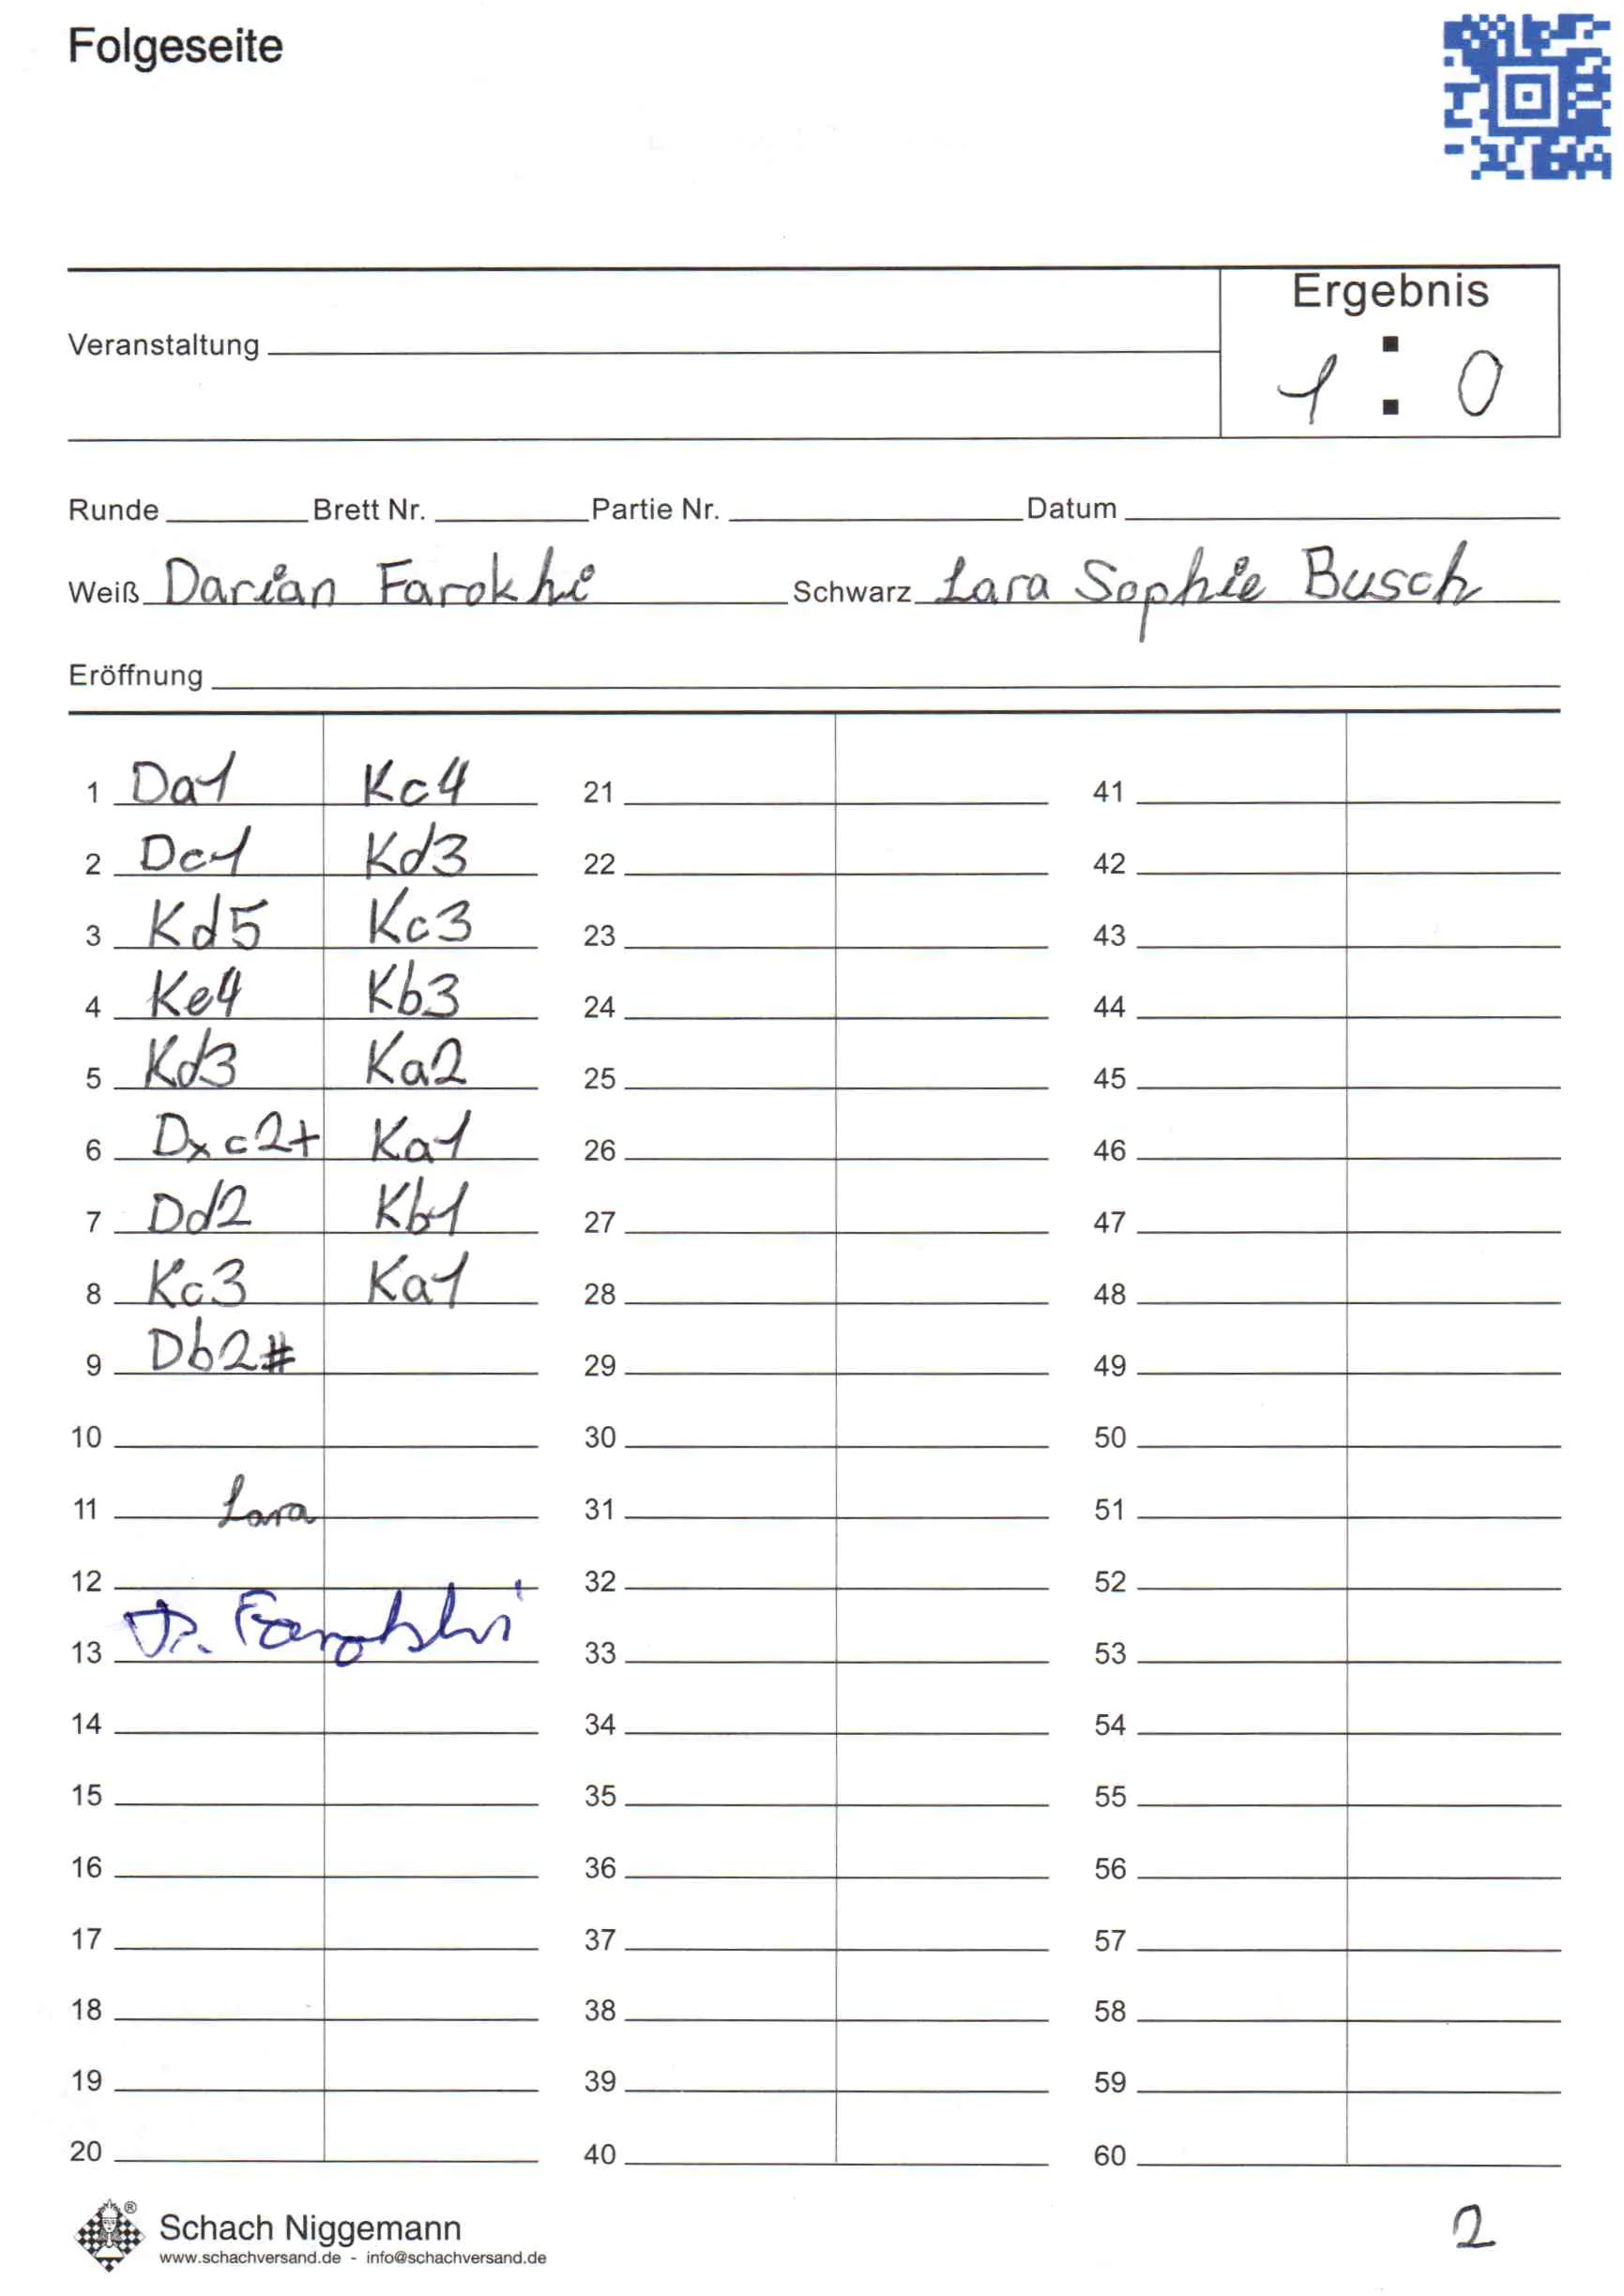 Folgeseite
Ergebnis
Veranstaltung
1 : 0
Runde Brett Nr. Partie Nr. Datum
Weiß Darian Farokhi Schwarz Lara Sophie Busch
Eröffnung
1 Da1 Kc4 21 41
2 Dc1 Kd3 22 42
3 Kd5 Kc3 23 43
4 Ke4 Kb3 24 44
5 Kd3 Ka2 25 45
6 Dxc2+ Ka1 26 46
7 Dd2 Kb1 27 47
8 Kc3 Ka1 28 48
9 Db2# 29 49
10 30 50
11 Lara 31 51
12 32 52
13 D. Farokhi 33 53
14 34 54
15 35 55
16 36 56
17 37 57
18 38 58
19 39 59
20 40 60
Schach Niggemann
www.schachversand.de - info@schachversand.de
2